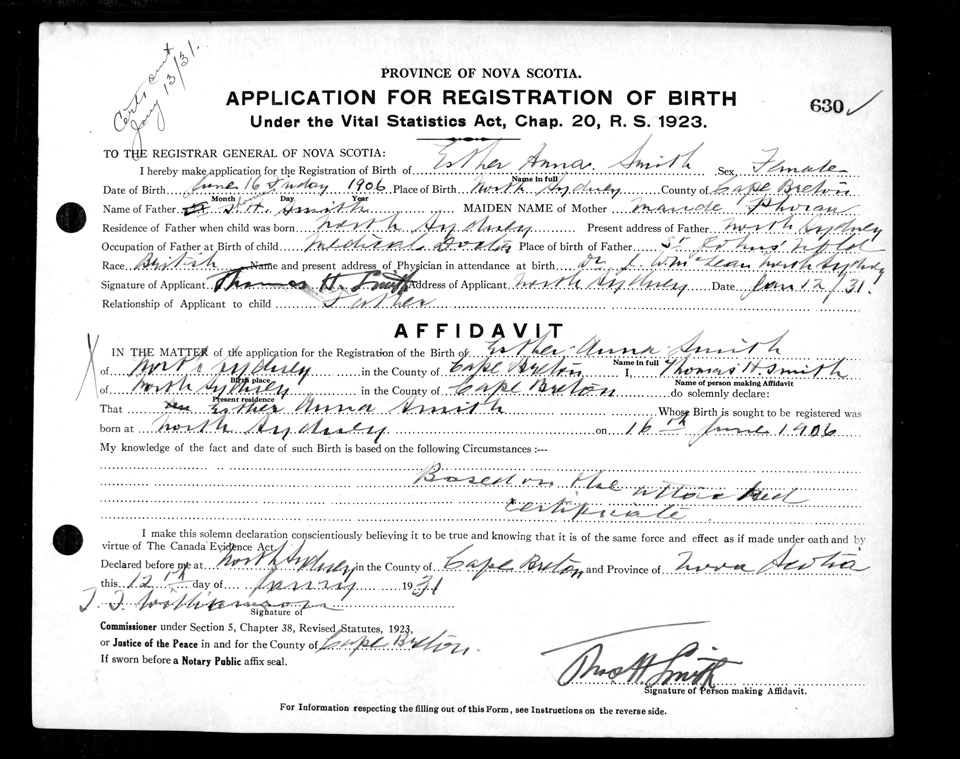 Certs out
Jany 13/31.
PROVINCE OF NOVA SCOTIA.
APPLICATION FOR REGISTRATION OF BIRTH
630 ✓
Under the Vital Statistics Act, Chap. 20, R. S. 1923.
TO THE REGISTRAR GENERAL OF NOVA SCOTIA:
I hereby make application for the Registration of Birth of Esther Anna Smith Sex Female
Name in full
Date of Birth June 16 Friday 1906 Place of Birth North Sydney County of Cape Breton
Month Day Year
Name of Father T. H. Smith MAIDEN NAME of Mother Maude
Residence of Father when child was born North Sydney Present address of Father North Sydney
Occupation of Father at Birth of child Medical Doctor Place of birth of Father St Johns Nfld
Race British Name and present address of Physician in attendance at birth Dr J. Wm Lean North Sydney
Signature of Applicant Thomas H. Smith Address of Applicant North Sydney Date Jan 12/31.
Relationship of Applicant to child Father
AFFIDAVIT
IN THE MATTER of the application for the Registration of the Birth of Esther Anna Smith
Name in full
of North Sydney in the County of Cape Breton I, Thomas H. Smith
Birth place Name of person making Affidavit
of North Sydney in the County of Cape Breton do solemnly declare:
Present residence
That Esther Anna Smith Whose Birth is sought to be registered was
born at North Sydney on 16th June 1906
My knowledge of the fact and date of such Birth is based on the following Circumstances :--
Based on the attached
certificate.
I make this solemn declaration conscientiously believing it to be true and knowing that it is of the same force and effect as if made under oath and by
virtue of The Canada Evidence Act.
Declared before me at North Sydney in the County of Cape Breton and Province of Nova Scotia
this 12th day of January 1931
Signature of
Commissioner under Section 5, Chapter 38, Revised Statutes, 1923,
or Justice of the Peace in and for the County of Cape Breton.
If sworn before a Notary Public affix seal.
Thos H. Smith
Signature of Person making Affidavit.
For Information respecting the filling out of this Form, see Instructions on the reverse side.